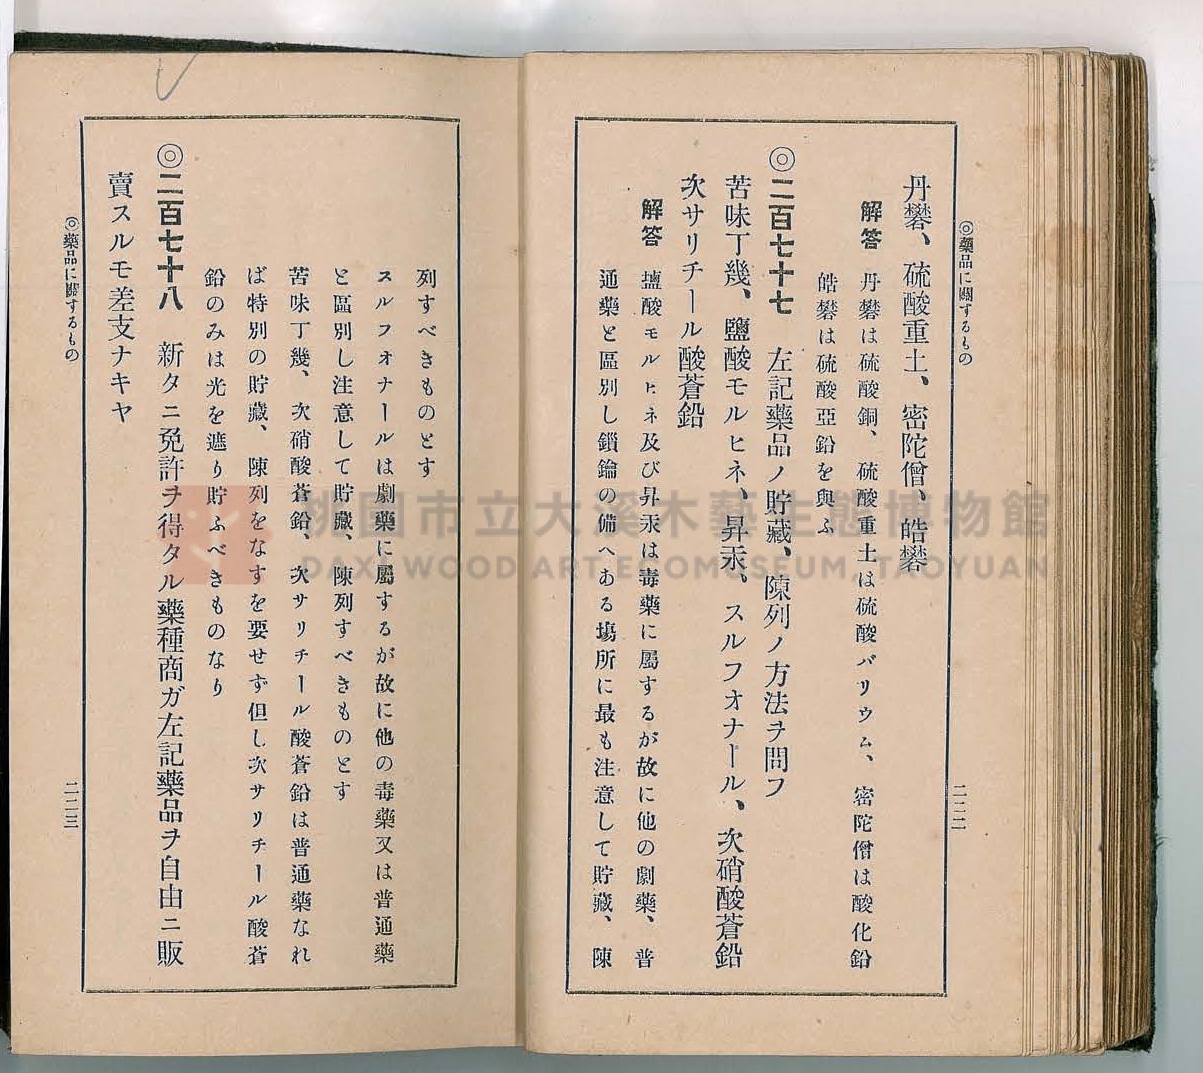 ◎藥品に關するもの
二二二
丹礬、硫酸重土、密陀僧、皓礬
解答 丹礬は硫酸銅、硫酸重土は硫酸バリウム、密陀僧は酸化鉛
皓礬は硫酸亞鉛を與ふ
◎二百七十七 左記藥品ノ貯藏、陳列ノ方法ヲ問フ
苦味丁幾、鹽酸モルヒネ、昇汞、スルフオナール、次硝酸蒼鉛
次サリチール酸蒼鉛
解答 鹽酸モルヒネ及び昇汞は毒藥に屬するが故に他の劇藥、普
通藥と區別し鎖鑰の備へある塲所に最も注意して貯藏、陳
列すべきものとす
スルフオナールは劇藥に屬するが故に他の毒藥又は普通藥
と區別し注意して貯藏、陳列すべきものとす
苦味丁幾、次硝酸蒼鉛、次サリチール酸蒼鉛は普通藥なれ
ば特別の貯藏、陳列をなすを要せず但し次サリチール酸蒼
鉛のみは光を遮り貯ふべきものなり
◎二百七十八 新タニ免許ヲ得タル藥種商ガ左記藥品ヲ自由ニ販
賣スルモ差支ナキヤ
◎藥品に關するもの
二二三
桃園市立大溪木藝生態博物館
DAXI WOOD ART ECOMUSEUM, TAOYUAN